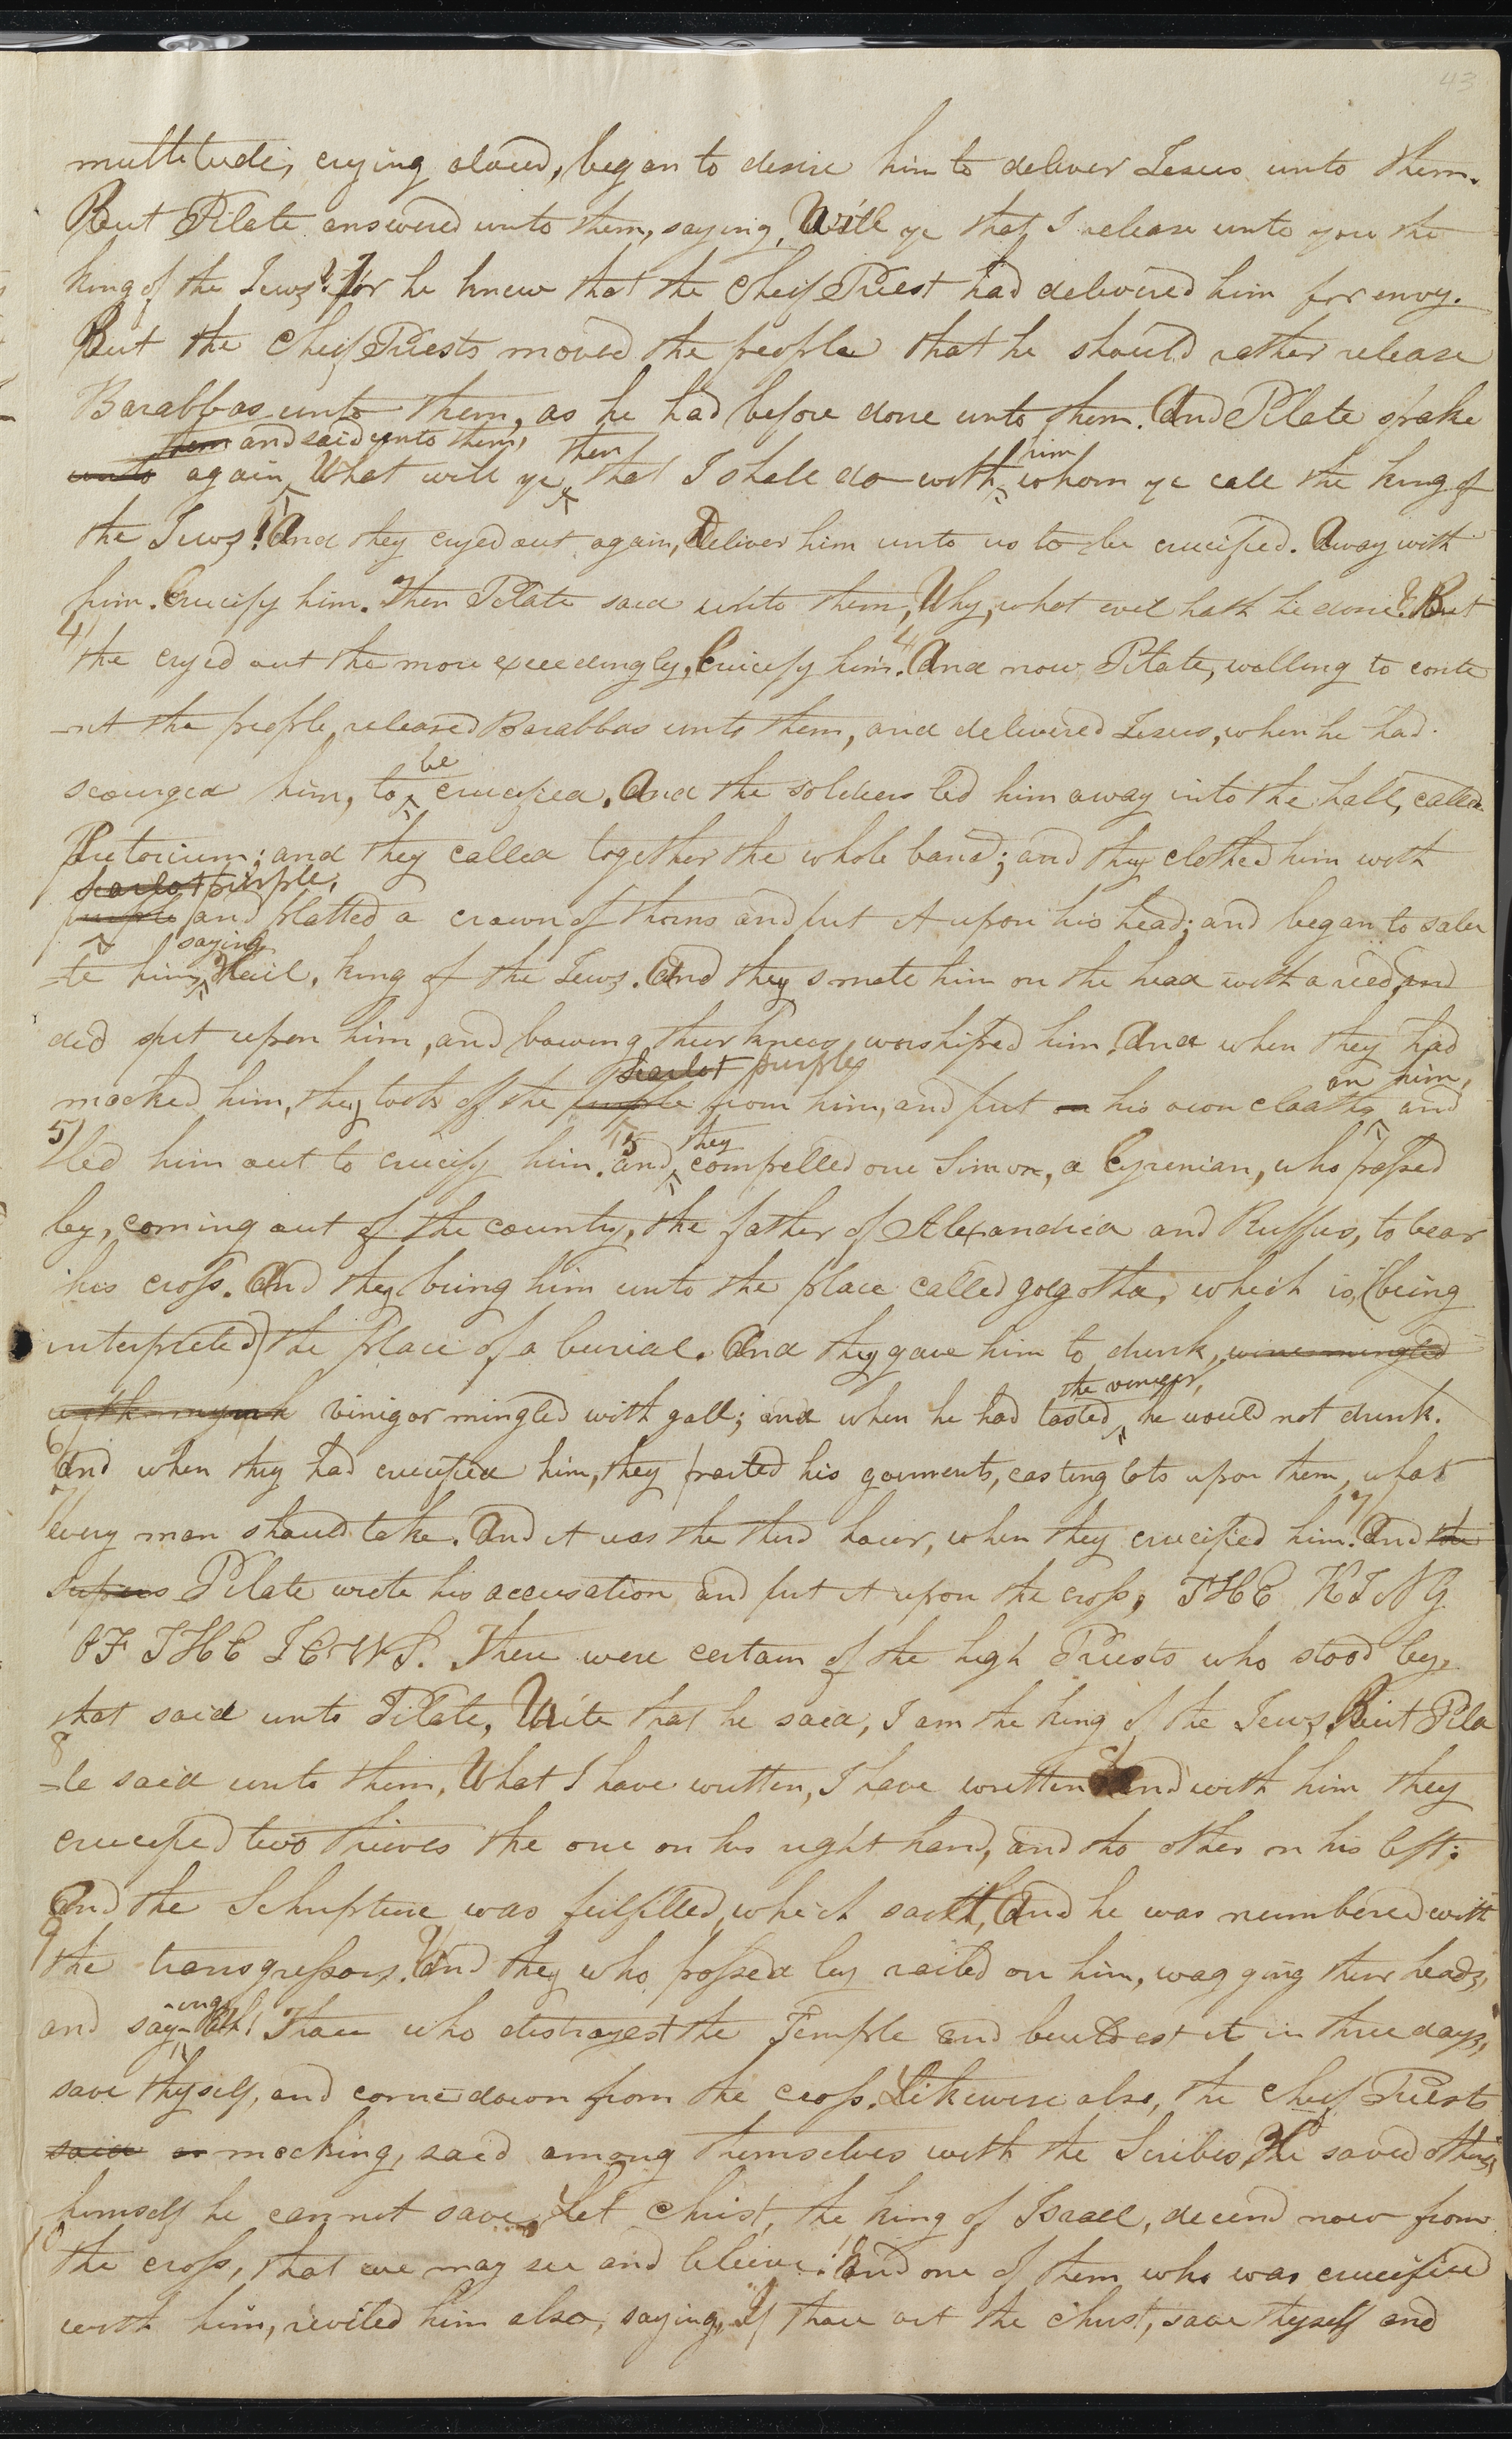 43
multitude, crying aloud, began to desire him to deliver Jesus unto them.
But Pilate answered unto them, saying, Will ye that I release unto you the
king of the Jews? For he knew that the Cheif Priest had delivered him for envy.
But the Cheif Priests moved the people that he should rather release
Barabbas unto them, as he had before done unto them. And Pilate spake
them and said unto them, then him
unto again, What will ye that I shall do with whom ye call the king of
the Jews? And they cryed out again, Deliver him unto us to be crucified. Away with
him. Crucify him. Then Pilate said unto them, Why, what evil hath he done? But
4 the cryed out the more exceedingly, Crucify him. 4 And now Pilate, willing to conte
-nt the people, released Barabbas unto them, and delivered Jesus, when he had
be
scourged him, to crucified. And the soldiers led him away into the hall, called
Pretorium; and they called together the whole band; and they clothed him with
scarlet purple,
purple and platted a crown of thorns and put it upon his head; and began to salu
saying
-te him, Hail, king of the Jews. And they smote him on the head with a reed, and
did spit upon him, and bowing their knees, worshipped him. And when they had
scarlet purple on him,
mocked him, they took off the purple from him, and put on his own cloaths and
5 they
5 led him out to crucify him. and compelled one Simon, a Cyrenian, who passed
by, coming out of the country, the father of Alexandria and Ruffus, to bear
his cross. And they bring him unto the place called golgotha, which is, (being
interpreted) the place of a burial. And they gave him to drink, wine mingled
the vinegar,
with myrrh vinigor mingled with gall; and when he had tasted he would not drink.
6 And when they had crucified him, they parted his garments, casting lots upon them, what
7 every man should take. And it was the third hour, when they crucified him. 7 And the
Pilate wrote his accusation and put it upon the cross, THE KING
OF THE JEWS. There were certain of the high Priests who stood by,
that said unto Pilate, Write that he said, I am the king of the Jews. But Pila
8 -te said unto them, What I have written, I have written. And with him they
crucified two thieves the one on his right hand, and the other on his left;
And the Schripture was fulfilled, which saith, And he was numbered with
9 the transgressors. And they who passed by railed on him, wagging their heads,
-ing
and say- Ah! Thou who distroyest the Temple and buildest it in three days,
save thyself, and come down from the cross. Likewise also, the Cheif Priests
said mocking, said among themselves with the Scribes, He saved others,
himself he cannot save, Let Christ, the King of Israel, decend now from
10 the cross, that we may see and beleive. And one of them who was crucified
with him, reviled him also, saying, If thou art the Christ, save thyself and